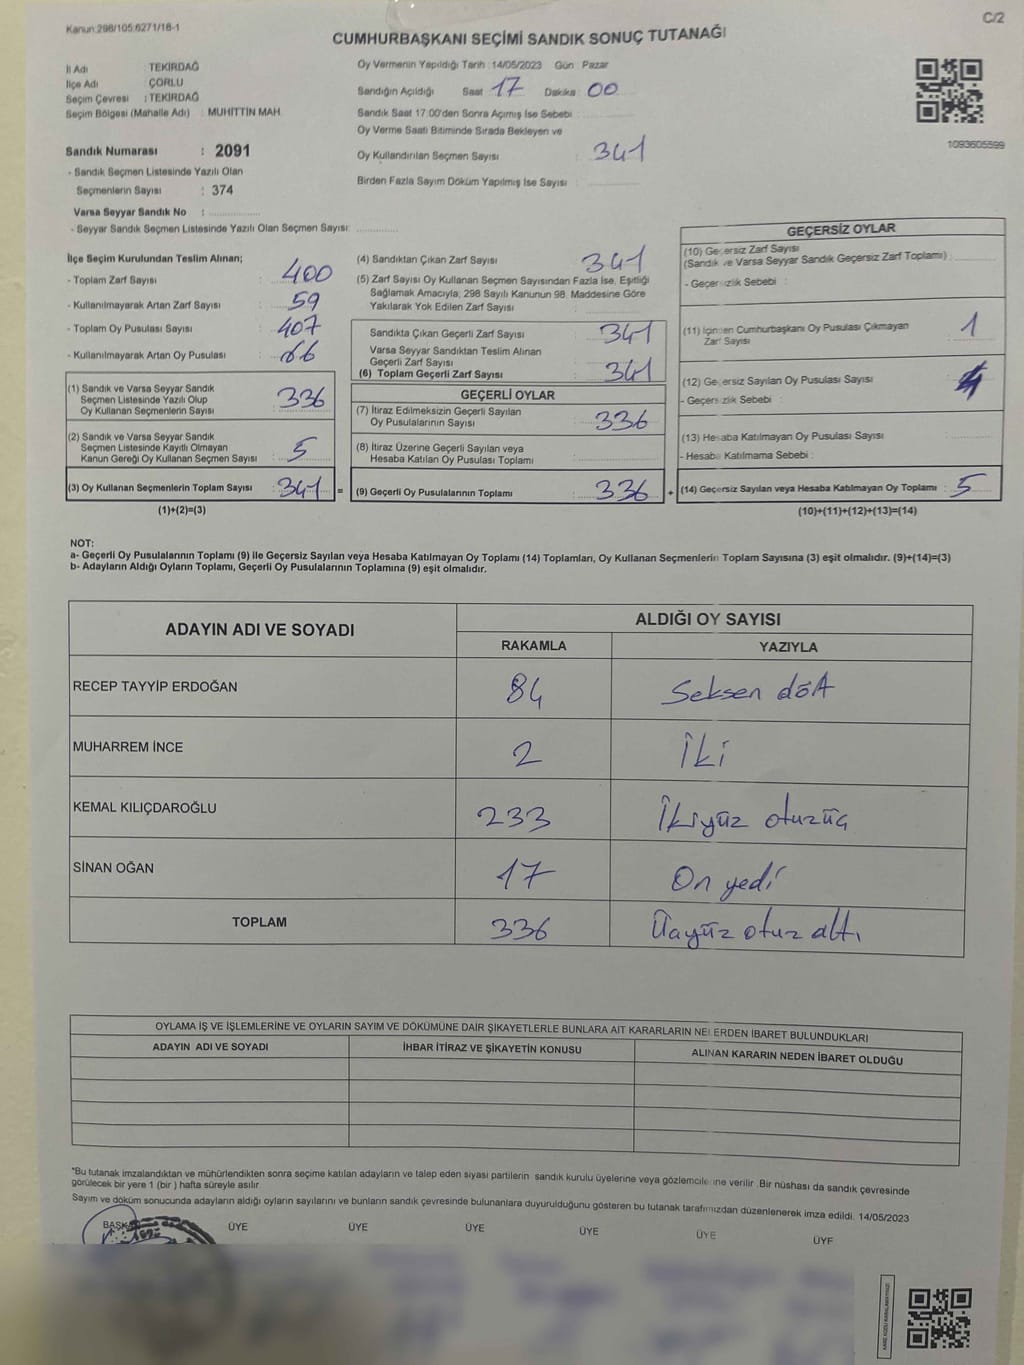 Kanun:298/105;6271/18-1
C/2
CUMHURBAŞKANI SEÇİMİ SANDIK SONUÇ TUTANAĞI
İl Adı : TEKİRDAĞ
İlçe Adı : ÇORLU
Seçim Çevresi : TEKİRDAĞ
Seçim Bölgesi (Mahalle Adı) : MUHİTTİN MAH.
Sandık Numarası : 2091
- Sandık Seçmen Listesinde Yazılı Olan
Seçmenlerin Sayısı : 374
Varsa Seyyar Sandık No :
- Seyyar Sandık Seçmen Listesinde Yazılı Olan Seçmen Sayısı:
Oy Vermenin Yapıldığı Tarih :14/05/2023 Gün : Pazar
Sandığın Açıldığı Saat : 17 Dakika : 00
Sandık Saat 17:00'den Sonra Açımış İse Sebebi :
Oy Verme Saati Bitiminde Sırada Bekleyen ve
Oy Kullandırılan Seçmen Sayısı : 341
Birden Fazla Sayım Döküm Yapılmış İse Sayısı :
1093605599
İlçe Seçim Kurulundan Teslim Alınan;
- Toplam Zarf Sayısı : 400
- Kullanılmayarak Artan Zarf Sayısı : 59
- Toplam Oy Pusulası Sayısı : 407
- Kullanılmayarak Artan Oy Pusulası : 66
(1) Sandık ve Varsa Seyyar Sandık
Seçmen Listesinde Yazılı Olup
Oy Kullanan Seçmenlerin Sayısı : 336
(2) Sandık ve Varsa Seyyar Sandık
Seçmen Listesinde Kayıtlı Olmayan
Kanun Gereği Oy Kullanan Seçmen Sayısı : 5
(3) Oy Kullanan Seçmenlerin Toplam Sayısı : 341 =
(1)+(2)=(3)
(4) Sandıktan Çıkan Zarf Sayısı : 341
(5) Zarf Sayısı Oy Kullanan Seçmen Sayısından Fazla İse, Eşitliği
Sağlamak Amacıyla; 298 Sayılı Kanunun 98. Maddesine Göre
Yakılarak Yok Edilen Zarf Sayısı :
Sandıkta Çıkan Geçerli Zarf Sayısı : 341
Varsa Seyyar Sandıktan Teslim Alınan
Geçerli Zarf Sayısı :
(6) Toplam Geçerli Zarf Sayısı : 341
GEÇERLİ OYLAR
(7) İtiraz Edilmeksizin Geçerli Sayılan
Oy Pusulalarının Sayısı : 336
(8) İtiraz Üzerine Geçerli Sayılan veya
Hesaba Katılan Oy Pusulası Toplamı :
(9) Geçerli Oy Pusulalarının Toplamı : 336 +
GEÇERSİZ OYLAR
(10) Geçersiz Zarf Sayısı
(Sandık ve Varsa Seyyar Sandık Geçersiz Zarf Toplamı) :
- Geçersizlik Sebebi :
(11) İçinden Cumhurbaşkanı Oy Pusulası Çıkmayan
Zarf Sayısı : 1
(12) Geçersiz Sayılan Oy Pusulası Sayısı : 4
- Geçersizlik Sebebi :
(13) Hesaba Katılmayan Oy Pusulası Sayısı :
- Hesaba Katılmama Sebebi :
(14) Geçersiz Sayılan veya Hesaba Katılmayan Oy Toplamı : 5
(10)+(11)+(12)+(13)=(14)
NOT:
a- Geçerli Oy Pusulalarının Toplamı (9) ile Geçersiz Sayılan veya Hesaba Katılmayan Oy Toplamı (14) Toplamları, Oy Kullanan Seçmenlerin Toplam Sayısına (3) eşit olmalıdır. (9)+(14)=(3)
b- Adayların Aldığı Oyların Toplamı, Geçerli Oy Pusulalarının Toplamına (9) eşit olmalıdır.
ADAYIN ADI VE SOYADI
ALDIĞI OY SAYISI
RAKAMLA YAZIYLA
RECEP TAYYİP ERDOĞAN 84 Seksen dört
MUHARREM İNCE 2 İki
KEMAL KILIÇDAROĞLU 233 İkiyüz otuzüç
SİNAN OĞAN 17 On yedi
TOPLAM 336 Üçyüz otuz altı
OYLAMA İŞ VE İŞLEMLERİNE VE OYLARIN SAYIM VE DÖKÜMÜNE DAİR ŞİKAYETLERLE BUNLARA AİT KARARLARIN NELERDEN İBARET BULUNDUKLARI
ADAYIN ADI VE SOYADI İHBAR İTİRAZ VE ŞİKAYETİN KONUSU ALINAN KARARIN NEDEN İBARET OLDUĞU
*Bu tutanak imzalandıktan ve mühürlendikten sonra seçime katılan adayların ve talep eden siyasi partilerin sandık kurulu üyelerine veya gözlemcilerine verilir .Bir nüshası da sandık çevresinde
görülecek bir yere 1 (bir ) hafta süreyle asılır.
Sayım ve döküm sonucunda adayların aldığı oyların sayılarını ve bunların sandık çevresinde bulunanlara duyurulduğunu gösteren bu tutanak tarafımızdan düzenlenerek imza edildi. 14/05/2023
BAŞKAN ÜYE ÜYE ÜYE ÜYE ÜYE ÜYE